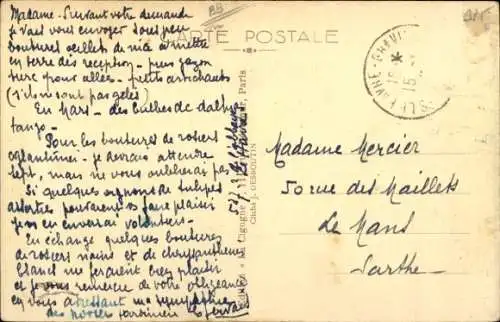 CARTE POSTALE
Madame - Suivant votre demande
je vais vous envoyer sous peu
boutures oeillets de ma
en terre dès reception - pieds gazon
turc pour allées - petits artichauts
(s'ils ne sont pas gelés)
En Mars - des bulbes de dalhias
tango -
Pour les boutures de rosiers
eglantines - je devrais attendre
sept, mais ne vous oublierai pas
Si quelques oignons de tulipes
assorties pouvaient vous faire plaisir
je vous en enverrai volontiers -
En échange quelques boutures
de rosiers nains et de chrysanthèmes
blancs me feraient très plaisir
et je vous remercie de votre obligeance
en vous adressant ma sympathie
des
Cigogne
Paris
Cliché J. DESSOUTIN
Madame Mercier
50 rue des Maillets
Le Mans
Sarthe